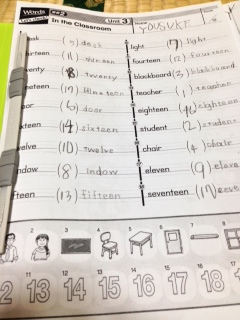 Words
In the Classroom Unit 3 Name YOUSUKE
esk (5) desk light (7) light
irteen (11) thirteen fourteen (12) fourteen
enty twenty blackboard (3) blackboard
neteen nineteen teacher (1) teacher
oor (6) door eighteen eighteen
ixteen (14) sixteen student (2) student
welve (10) twelve chair (4) chair
indow (8) indow eleven (9) eleve
fteen (13) fifteen seventeen
1 2 3 4 5 6 7 8
11 12 13 14 15 16 17
2 13 14 15 16 17 18